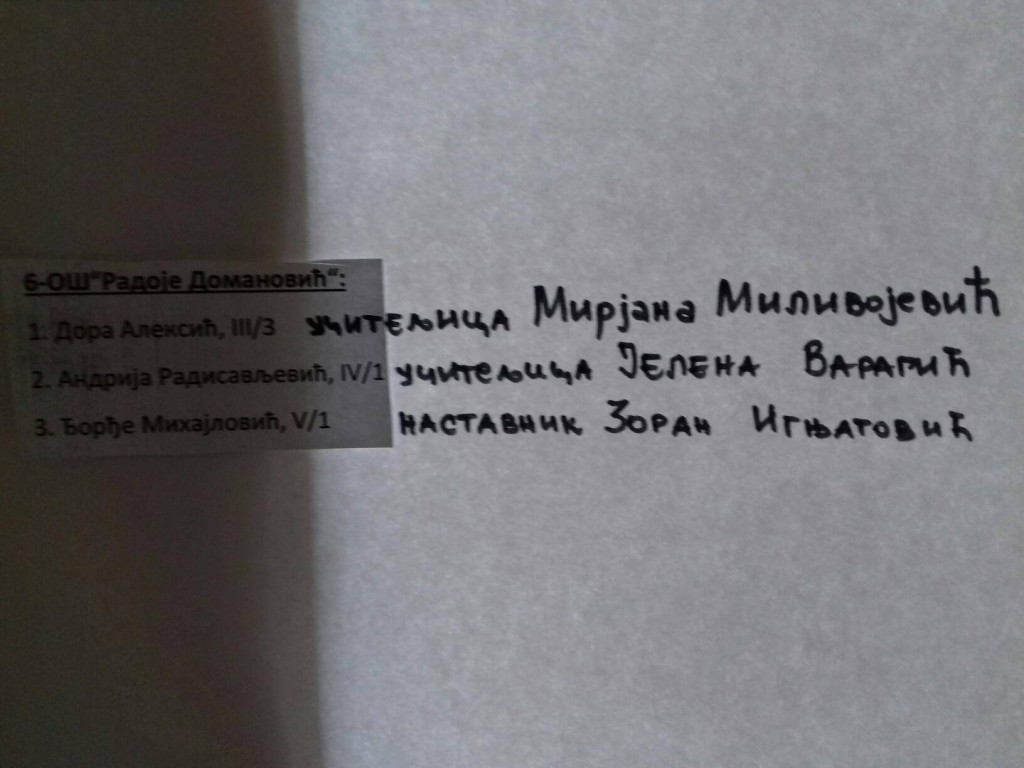 6-ОШ“Радоје Домановић“:
1. Дора Алексић, III/3 учитељица Мирјана Миливојевић
2. Андрија Радисављевић, IV/1 учитељица ЈЕЛЕНА ВАРАГИЋ
3. Ђорђе Михајловић, V/1 НАСТАВНИК ЗОРАН ИГЊАТОВИЋ